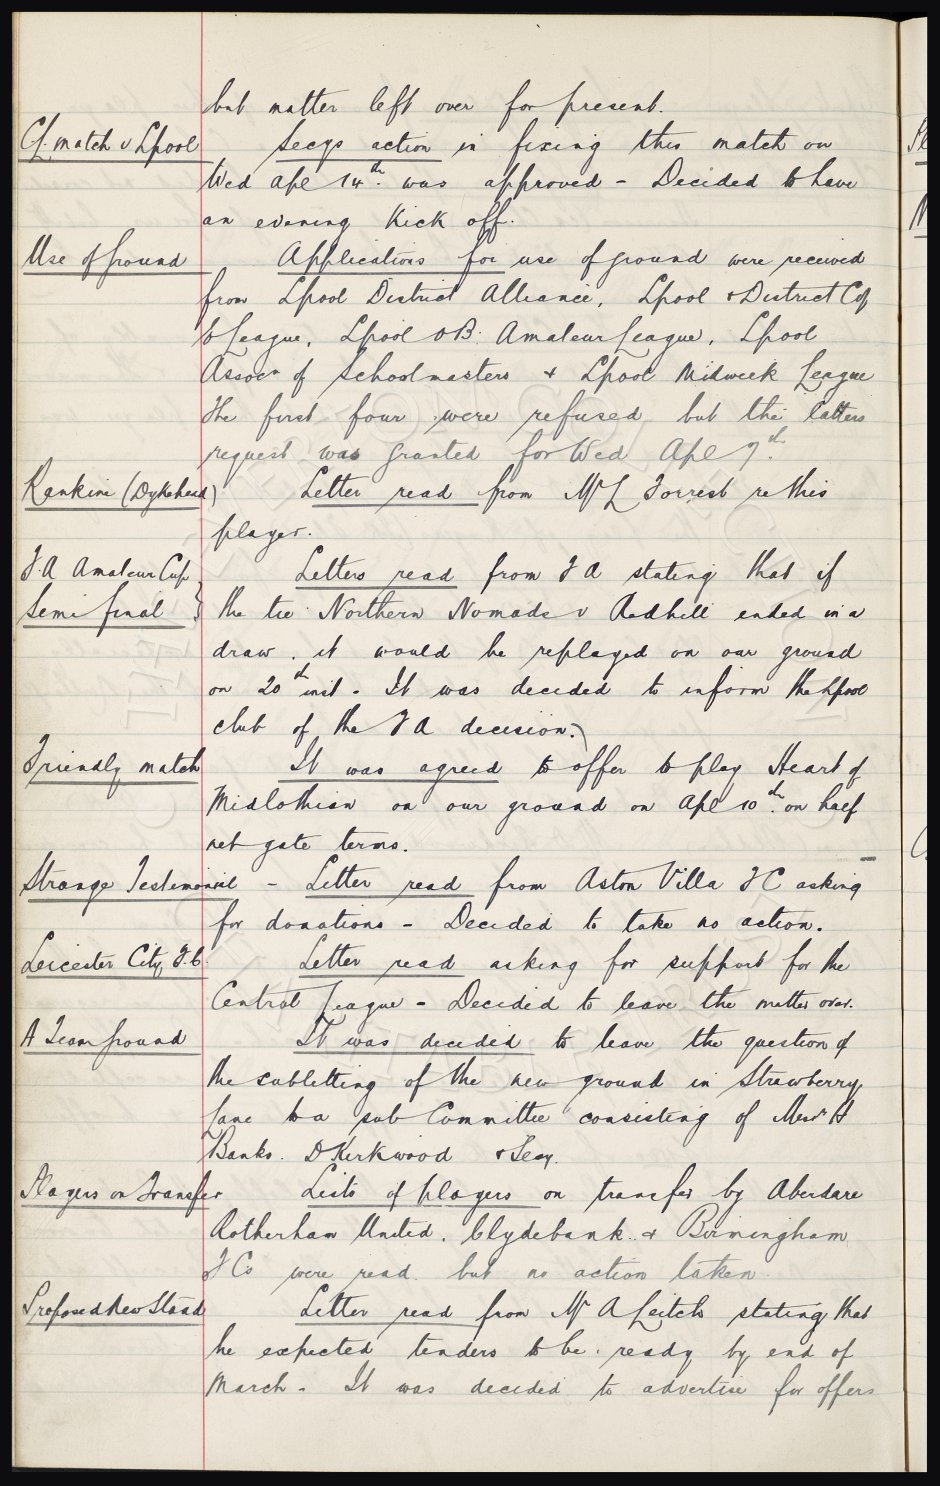 but matter left over for present.
Cl. match v Lpool Secys action in fixing this match on
Wed Apl 14th. was approved - Decided to have
an evening Kick off.
Use of Ground Applications for use of ground were received
from Lpool District Alliance, Lpool & District Cop
League, Lpool O B. Amateur League, Lpool
Assocn of Schoolmasters & Lpool Midweek League
The first four were refused but the latters
request was granted for Wed Apl 7th.
Rankine (Dykehead) Letter read from Mr L Forrest re this
player.
F.A Amateur Cup Letters read from F A stating that if
Semi final } the tie Northern Nomads v Redhill ended in a
draw, it would be replayed on our ground
on 20th inst - It was decided to inform the Lpool
club of the F A decision.
Friendly match It was agreed to offer to play Heart of
Midlothian on our ground on Apl 10th. on half
net gate terms.
Strange Testimonial - Letter read from Aston Villa F C asking
for donations - Decided to take no action.
Leicester City F.C. Letter read asking for support for the
Central League - Decided to leave the matter over.
A Team Ground It was decided to leave the question of
the subletting of the new ground in Strawberry
Lane to a sub Committee consisting of Messrs H
Banks. D Kirkwood & Secy.
Players on Transfer Lists of players on transfer by Aberdare
Rotherham United, Clydebank & Birmingham
F Cs were read but no action taken.
Proposed New Stand Letter read from Mr A Leitch stating that
he expected tenders to be ready by end of
March - It was decided to advertise for offers